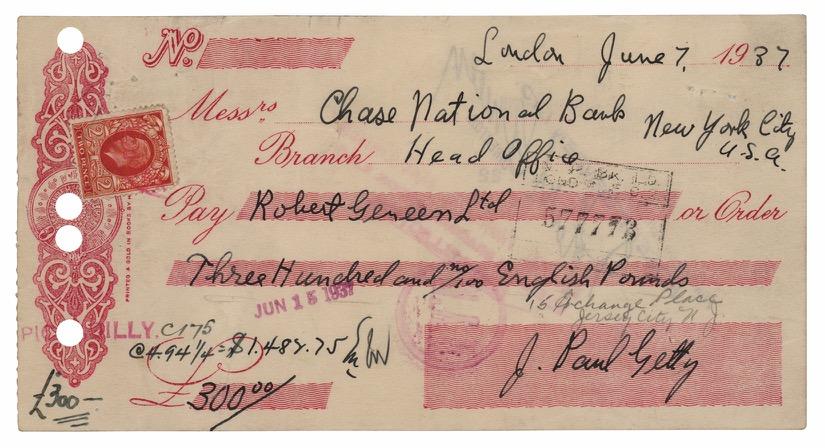 No. London June 7, 1937
Messrs Chase National Bank New York City
Branch Head Office U.S.A.
Pay Robert Geneen Ltd or Order
577773
Three Hundred and no/100 English Pounds
JUN 15 1937
15 Exchange Place
Jersey City N.J.
PICCADILLY. C175
@4.94 1/4 = $1.482.75
J. Paul Getty
£ 300 00/
£300—
PRINTED & SOLD IN BOOKS BY